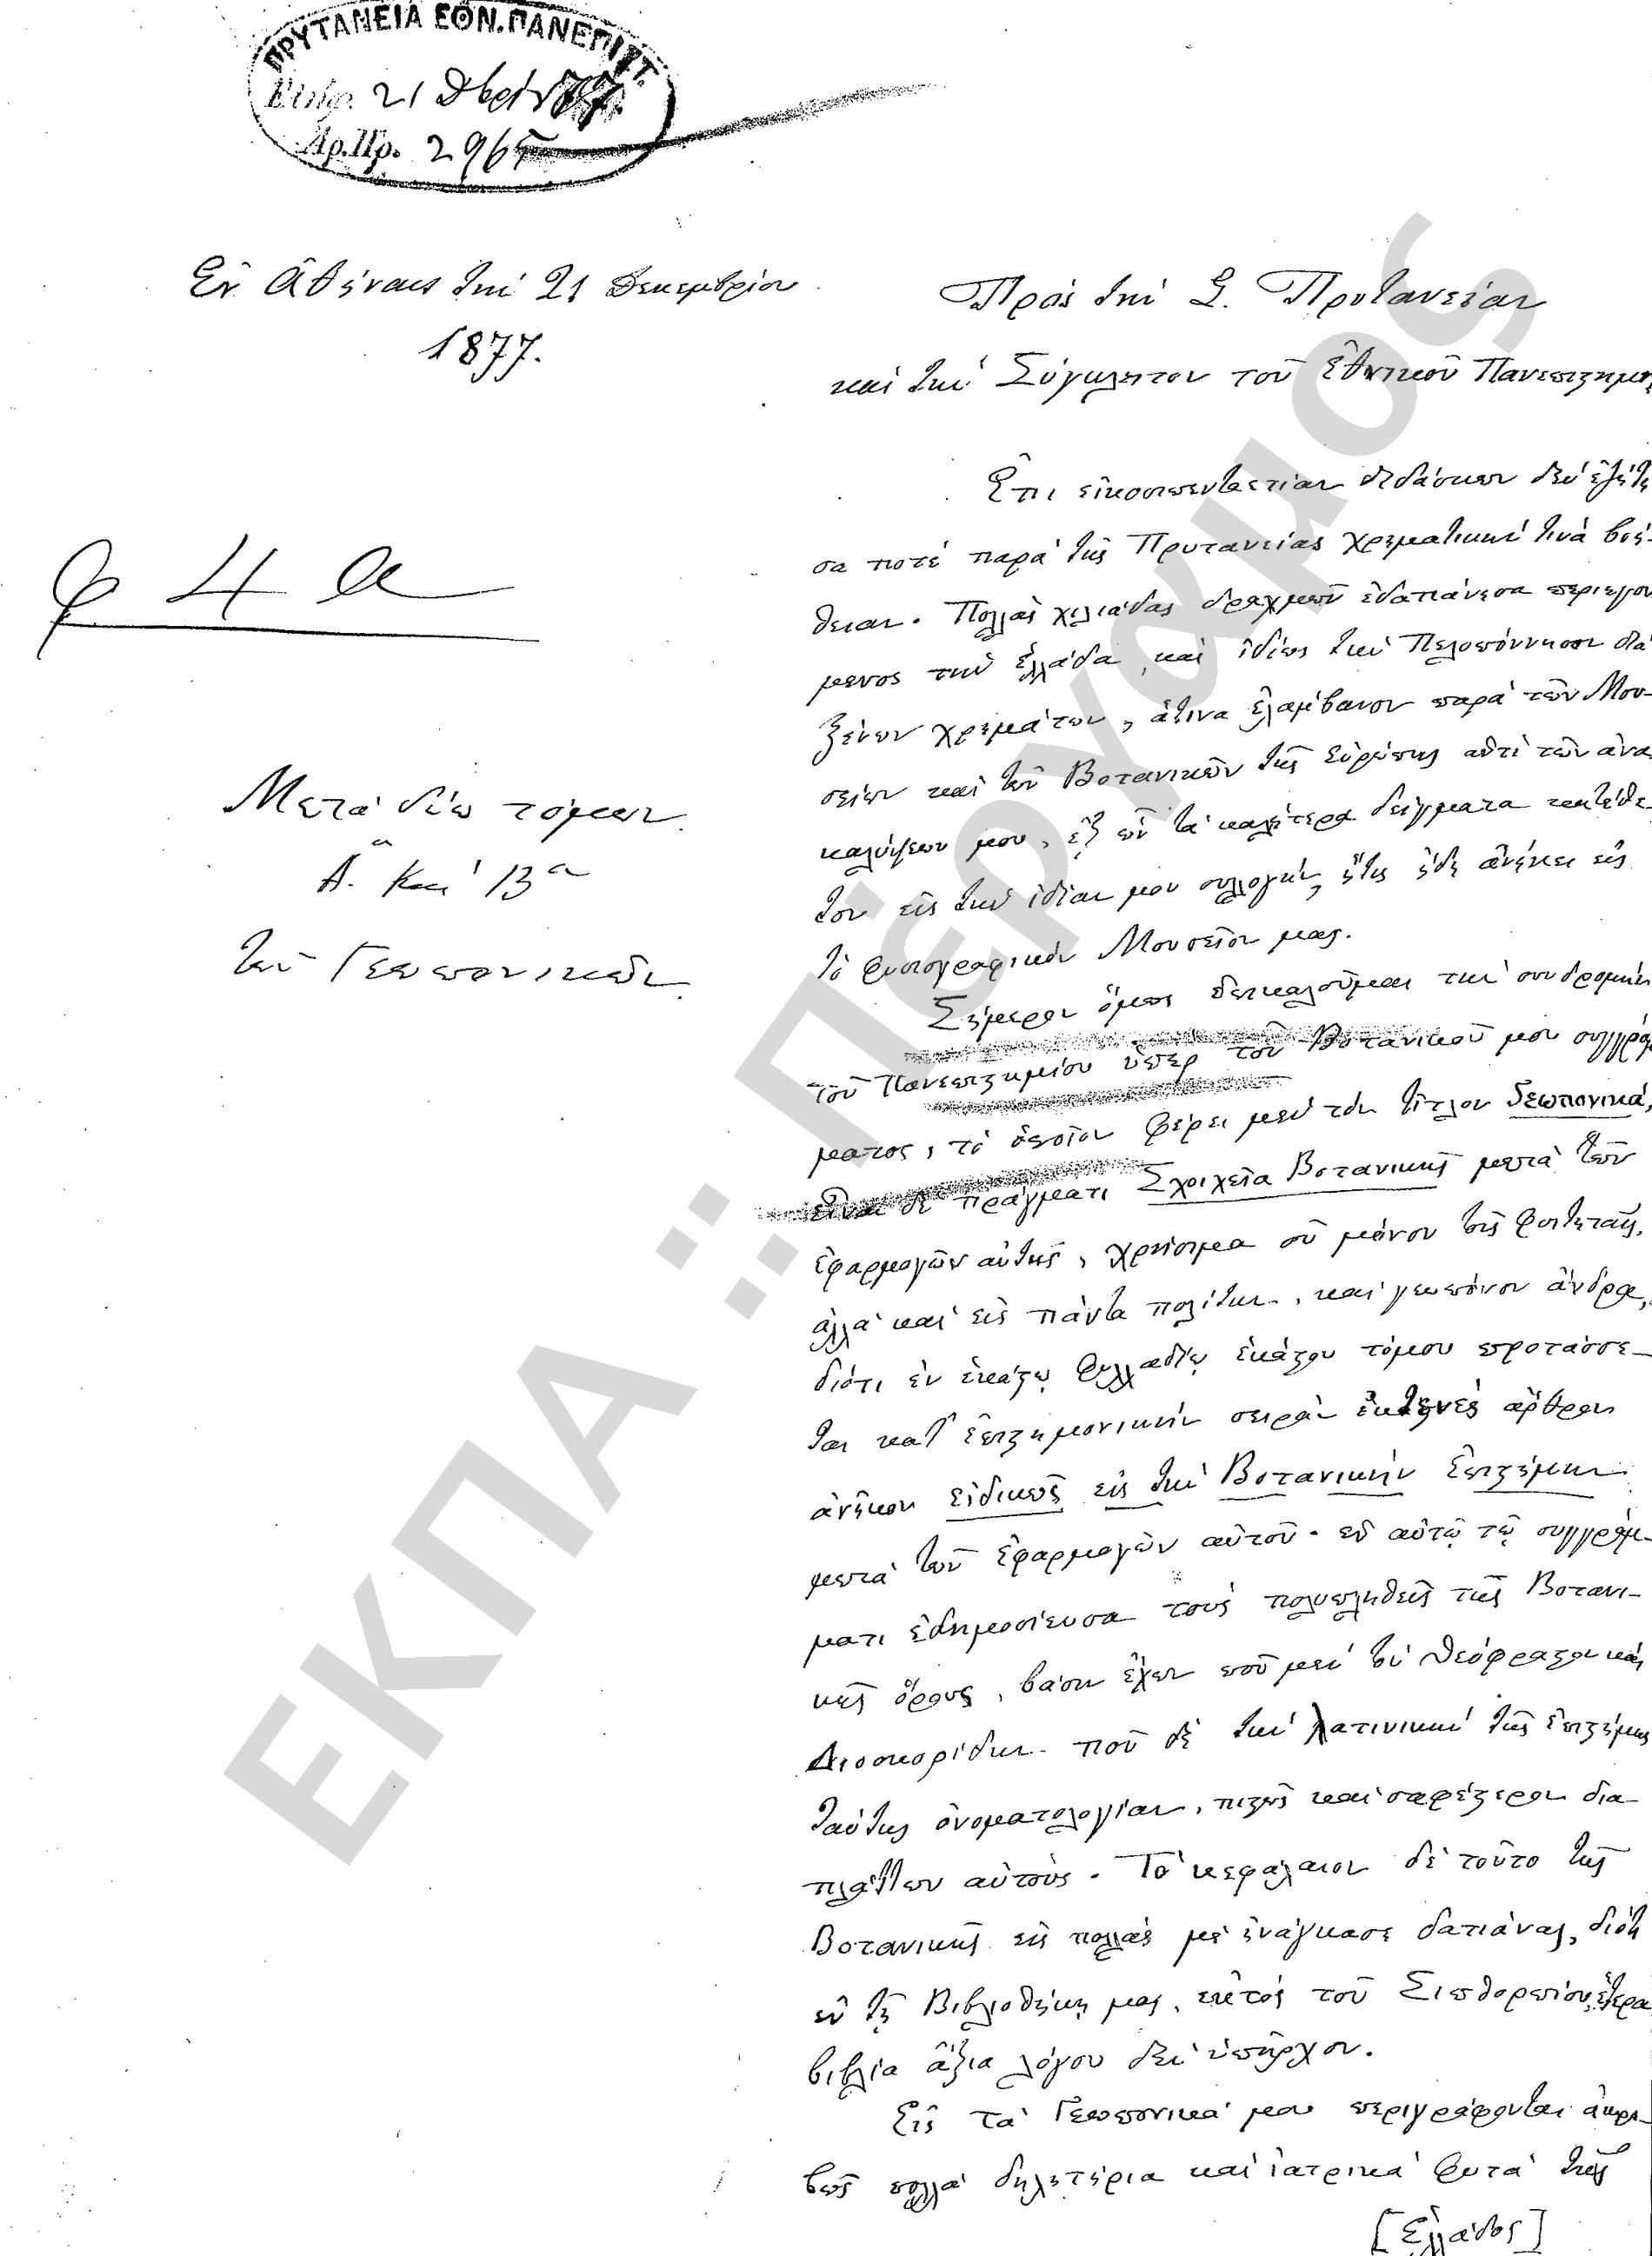 ΠΡΥΤΑΝΕΙΑ ΕΘΝ. ΠΑΝΕΠΙΣΤ.
21 Δβρίου 77
Αρ.Πρ. 2965
Ἐν Ἀθήναις τῇ 21 Δεκεμβρίου
1877.
φ 4 α
Μετὰ δύω τόμων
Α. καὶ Βα
τῶν Γεωπονικῶν.
Πρὸς τὴν Σ. Πρυτανείαν
καὶ τὴν Σύγκλητον τοῦ Ἐθνικοῦ Πανεπιστημίου
Ἐπὶ εἰκοσιπενταετίαν διδάσκων δὲν ἐζήτη
σα ποτὲ παρὰ τῆς Πρυτανείας χρηματικήν τινα βοή-
θειαν. Πολλὰς χιλιάδας δραχμῶν ἐδαπάνησα περιηγού
μενος τὴν Ἑλλάδα, καὶ ἰδίως τὴν Πελοπόννησον διὰ
ξένων χρημάτων, ἅτινα ἐλάμβανον παρὰ τῶν Μου-
σείων καὶ τῶν Βοτανικῶν τῆς Εὐρώπης ἀντὶ τῶν ἀνα
καλύψεων μου, ἐξ ὧν τὰ καλλίτερα δείγματα κατέθε
τον εἰς τὴν ἰδίαν μου συλλογήν, ἥτις ἤδη ἀνήκει εἰς
τὸ φυσιογραφικὸν Μουσεῖον μας.
Σήμερον ὅμως ἐπικαλοῦμαι τὴν συνδρομὴν
τοῦ Πανεπιστημίου ὑπὲρ τοῦ Βοτανικοῦ μου συγγράμ
ματος, τὸ ὁποῖον φέρει μὲν τὸν τίτλον Γεωπονικά,
εἶναι δὲ πράγματι Στοιχεῖα Βοτανικῆς μετὰ τῶν
ἐφαρμογῶν αὐτῆς, χρήσιμα οὐ μόνον τοῖς φοιτηταῖς,
ἀλλὰ καὶ εἰς πάντα πολίτην, καὶ γεωπόνον ἄνδρα,
διότι ἐν ἑκάστῳ φυλλαδίῳ ἑκάστου τόμου προτάσσε-
ται κατ' ἐπιστημονικὴν σειρὰν ἐκτενὲς ἄρθρον
ἀνῆκον εἰδικῶς εἰς τὴν Βοτανικὴν Ἐπιστήμην
μετὰ τῶν ἐφαρμογῶν αὐτοῦ. ἐν αὐτῷ τῷ συγγράμ-
ματι ἐδημοσίευσα τοὺς πολυπληθεῖς τῆς Βοτανι-
κῆς ὅρους, βάσιν ἔχων ποῦ μὲν τὸν Θεόφραστον καὶ
Διοσκορίδην ποῦ δὲ τὴν λατινικὴν τῆς Ἐπιστήμης
ταύτης ὀνοματολογίαν, πιστῶς καὶ σαφέστερον δια-
πλάττων αὐτούς. Τὸ κεφάλαιον δὲ τοῦτο τῆς
Βοτανικῆς εἰς πολλὰς μὲ ἠνάγκασε δαπάνας, διότι
ἐν τῇ Βιβλιοθήκῃ μας, ἐκτὸς τοῦ Σιβθορπίου, ἕτερα
βιβλία ἄξια λόγου δὲν ὑπῆρχον.
Εἰς τὰ Γεωπονικά μου περιγράφονται ἀκρι-
βῶς πολλὰ δηλητήρια καὶ ἰατρικὰ φυτὰ τῆς
[Ἑλλάδος]
ΕΚΠΑ :: Πέργαμος